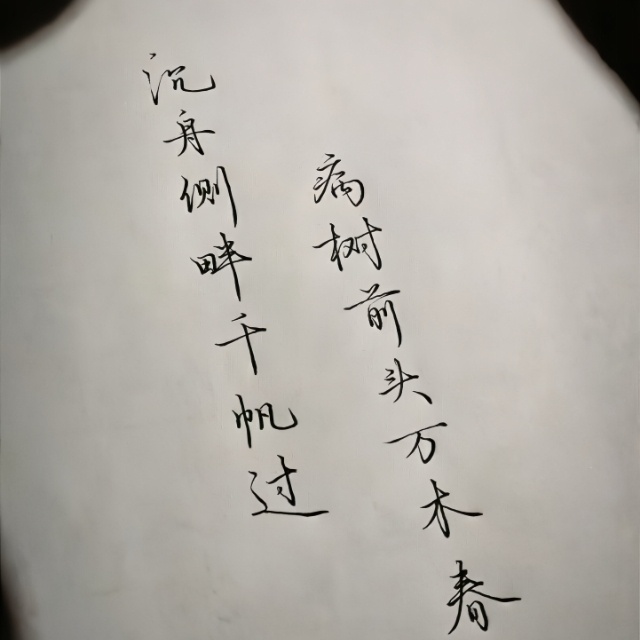 沉舟侧畔千帆过
病树前头万木春